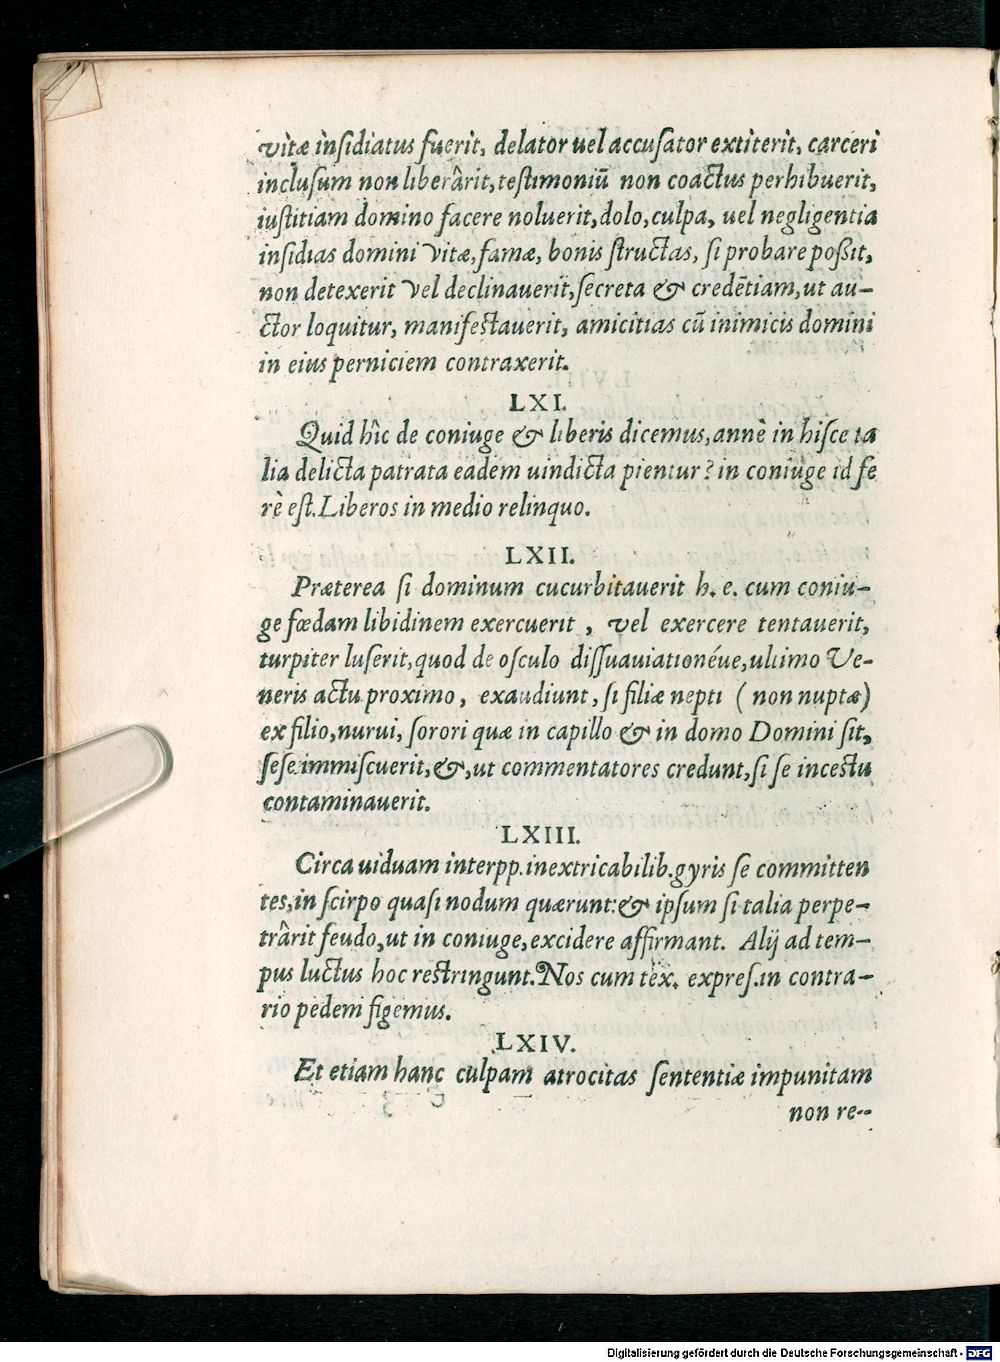 vitæ insidiatus fuerit, delator uel accusator extiterit, carceri
inclusum non liberârit, testimoniū non coactus perhibuerit,
iustitiam domino facere noluerit, dolo, culpa, uel negligentia
insidias domini vitæ, famæ, bonis structas, si probare poßit,
non detexerit vel declinauerit, secreta & credētiam, ut au-
ctor loquitur, manifestauerit, amicitias cū inimicis domini
in eius perniciem contraxerit.
LXI.
Quid hîc de coniuge & liberis dicemus, annè in hisce ta
lia delicta patrata eadem uindicta pientur? in coniuge id fe
rè est. Liberos in medio relinquo.
LXII.
Præterea si dominum cucurbitauerit h. e. cum coniu-
ge fœdam libidinem exercuerit, vel exercere tentauerit,
turpiter luserit, quod de osculo dissuauiationéue, ultimo Ve-
neris actu proximo, exaudiunt, si filiæ nepti (non nuptæ)
ex filio, nurui, sorori quæ in capillo & in domo Domini sit,
sese immiscuerit, &, ut commentatores credunt, si se incestu
contaminauerit.
LXIII.
Circa uiduam interpp. inextricabilib. gyris se committen
tes, in scirpo quasi nodum quærunt: & ipsum si talia perpe-
trârit feudo, ut in coniuge, excidere affirmant. Alij ad tem-
pus luctus hoc restringunt. Nos cum tex. expres. in contra-
rio pedem figemus.
LXIV.
Et etiam hanc culpam atrocitas sententiæ impunitam
non re--
Digitalisierung gefördert durch die Deutsche Forschungsgemeinschaft - DFG